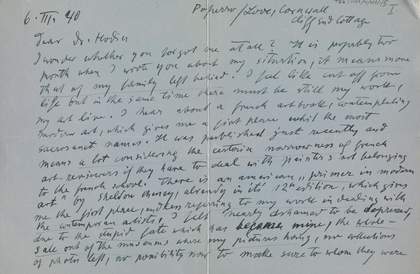 6. III. 40
Polperro/Looe, Cornwall
Cliff End Cottage
I
Dear Dr. Hodin
I wonder whether you forgot me at all? It is probably two
month when I wrote you about my situation, it means more
that of my family left behind. I feel like cut off from
life but in the same time there must be still my work,
my art live. I hear about a french art book, contemplating
modern art, which gives me a first place whilst the most
sacrosanct names. It was published just recently and
means a lot considering the certain narrowness of french
art-reviewers if they have to deal with painters not belonging
to the french school. There is an american "primer in modern
art" by Sheldon Cheney, already in its 12th edition, which gives
me the first place, unless referring to my work in dealing with
the contemporan artists, I felt nearly ashamed to be depressed
due to the stupid fate which has become mine, the whole
sale out of the museums where my pictures hang, no collections
of photos left, no possibility now to make sure to whom they were